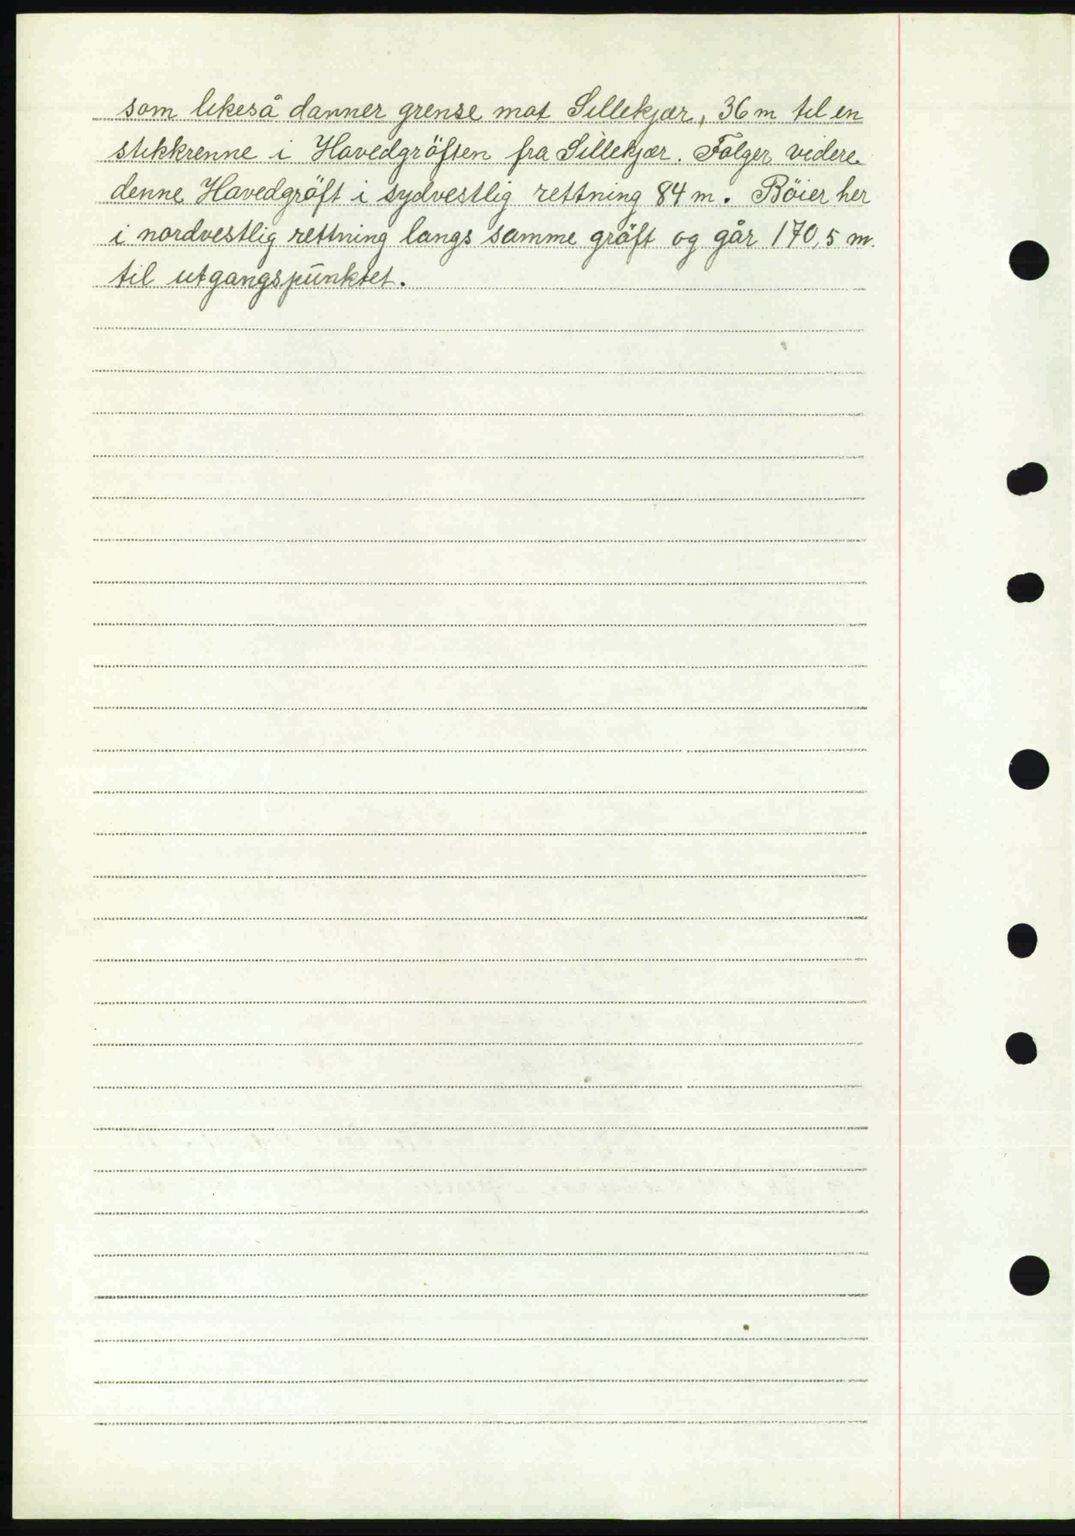 som likeså danner grense mot Sillekjær, 36 m til en
stikkrenne i Hovedgröften fra Sillekjær. Følger videre
denne Hovedgröft i sydvestlig rettning 84 m. Böier her
i nordvestlig rettning langs samme gröft og går 170,5 m.
til utgangspunktet.